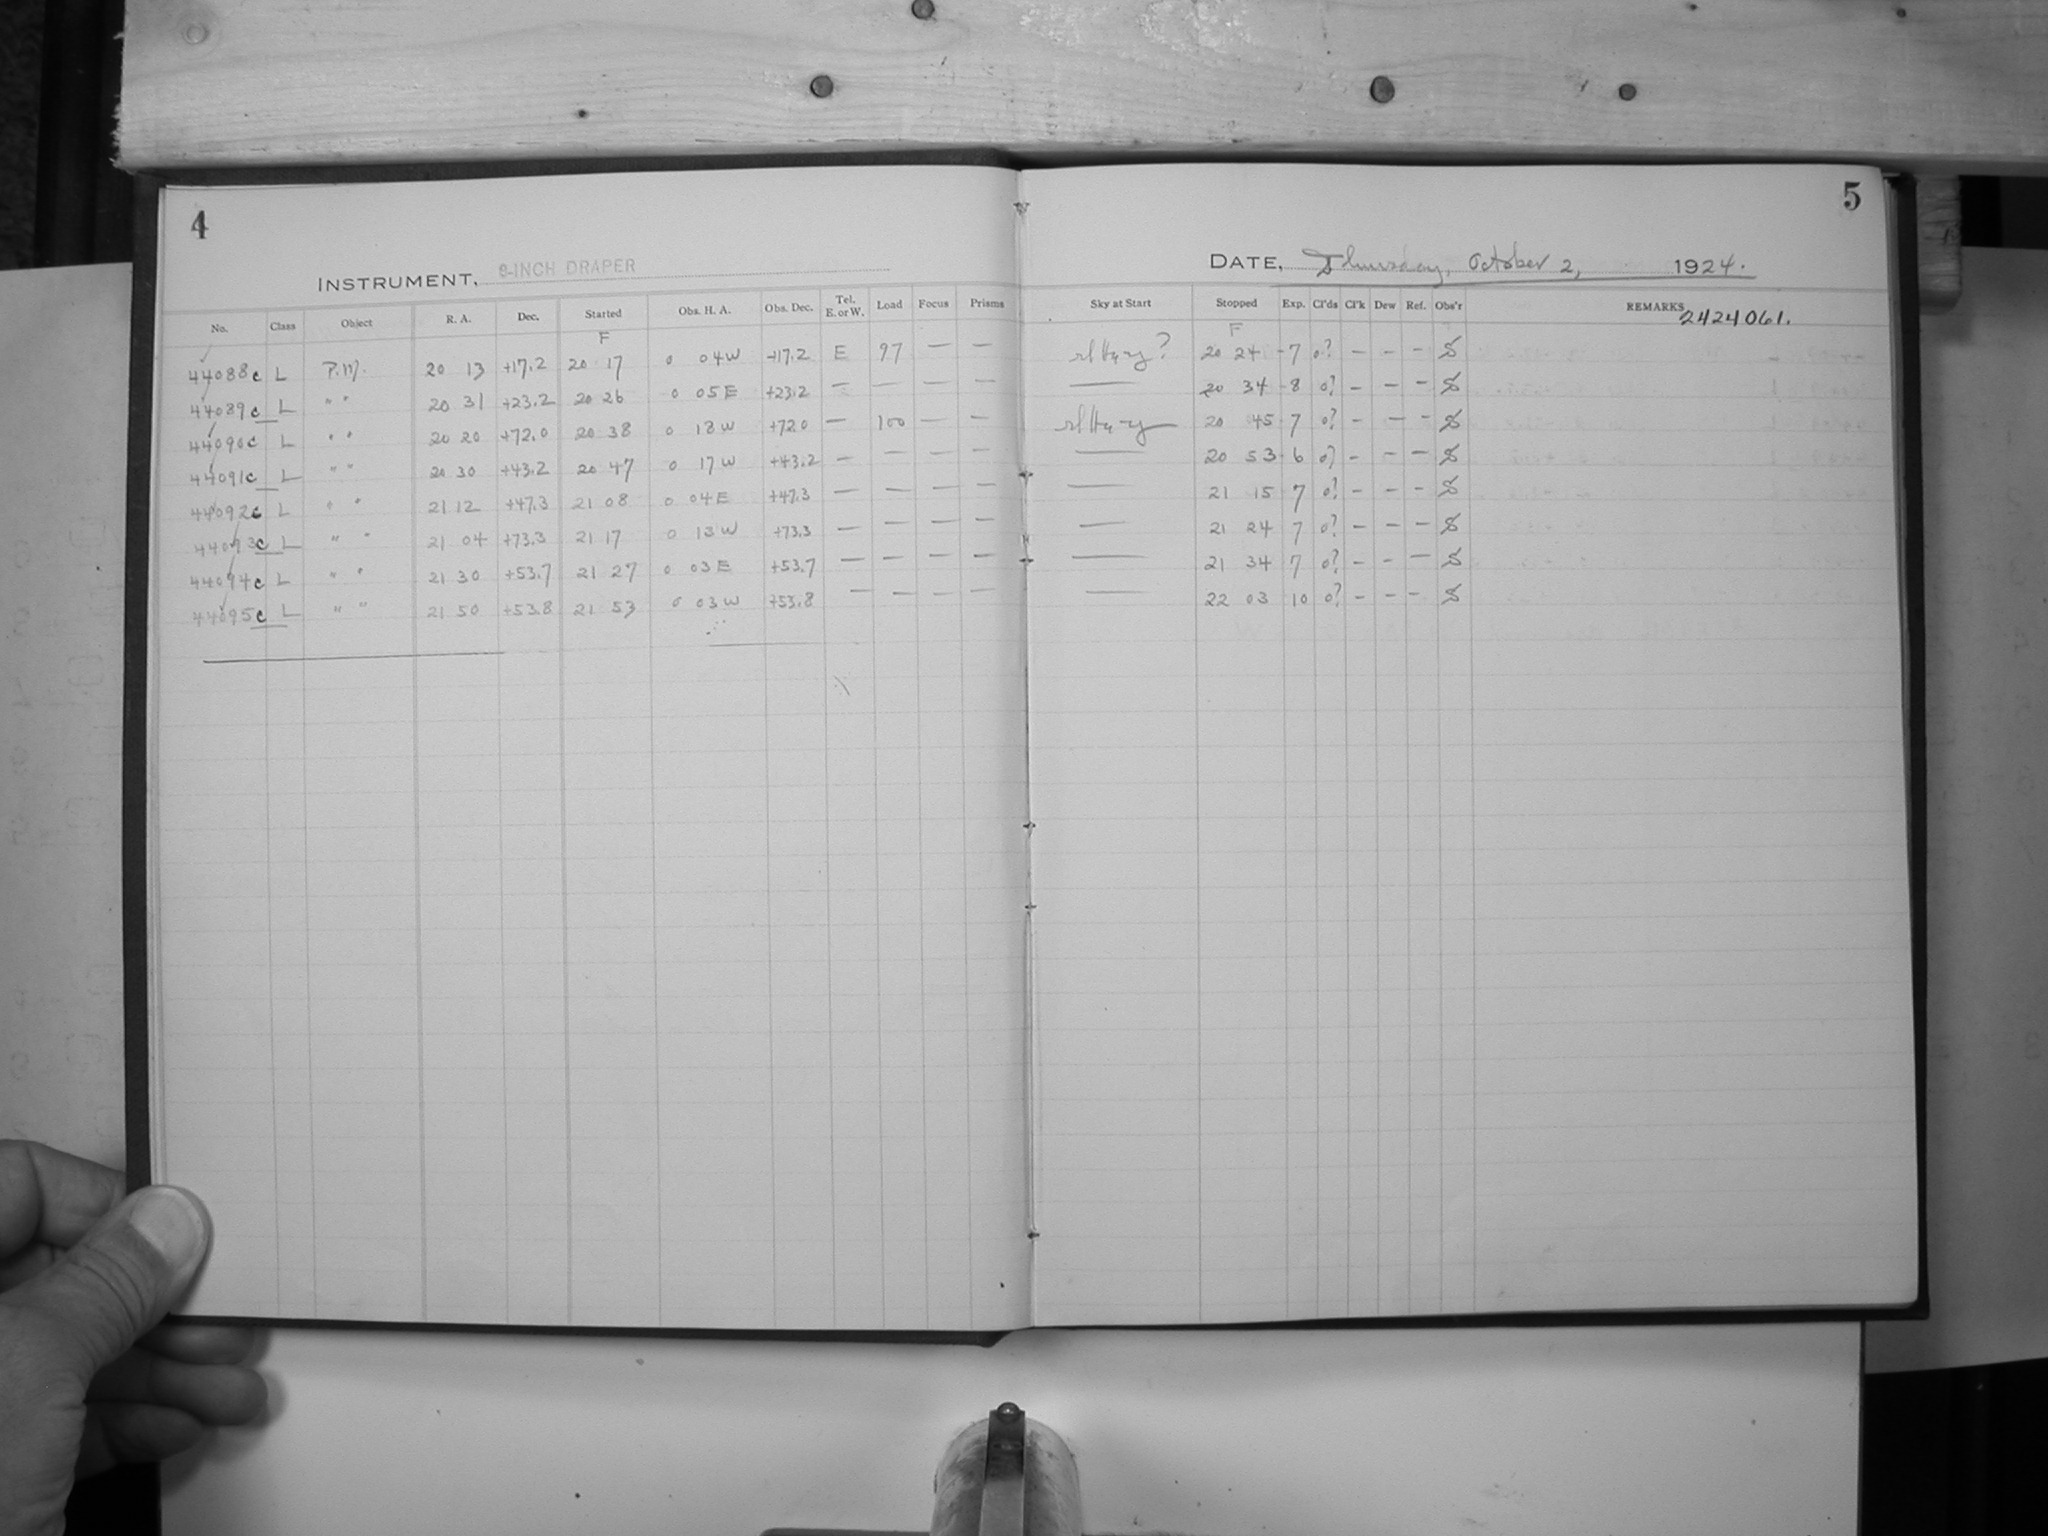 4
INSTRUMENT, 8-INCH DRAPER
No. Class Object R. A. Dec. Started Obs. H. A. Obs. Dec. Tel. E. or W. Load Focus Prisms
F
44088c L P.M. 20 13 +17.2 20 17 0 04W +17.2 E 97 — —
44089c L " " 20 31 +23.2 20 26 0 05E +23.2 — — — —
44090c L " " 20 20 +72.0 20 38 0 18W +72.0 — 100 — —
44091c L " " 20 30 +43.2 20 47 0 17W +43.2 — — — —
44092c L " " 21 12 +47.3 21 08 0 04E +47.3 — — — —
44093c L " " 21 04 +73.3 21 17 0 13W +73.3 — — — —
44094c L " " 21 30 +53.7 21 27 0 03E +53.7 — — — —
44095c L " " 21 50 +53.8 21 53 0 03W +53.8 — — — —
5
DATE, Thursday, October 2, 1924.
Sky at Start Stopped Exp. Cl'ds Cl'k Dew Ref. Obs'r REMARKS
2424061.
F
20 24 7 0? — — — S
— 20 34 8 0? — — — S
20 45 7 0? — — — S
— 20 53 6 0? — — — S
— 21 15 7 0? — — — S
— 21 24 7 0? — — — S
— 21 34 7 0? — — — S
— 22 03 10 0? — — — S